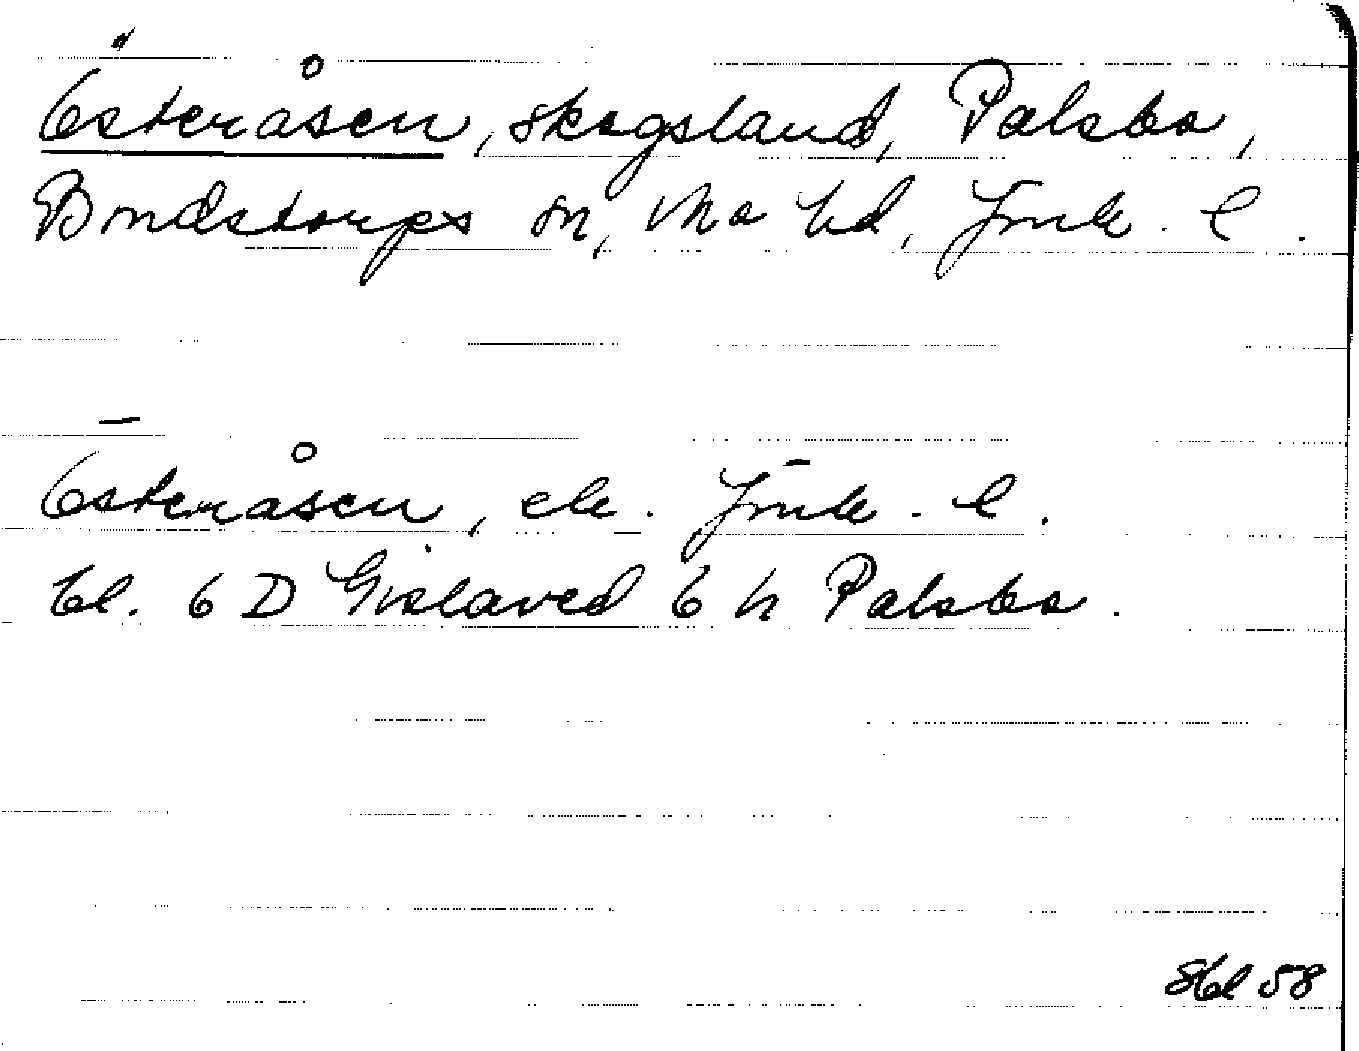 Österåsen, skogsland, Palsbo,
Bondstorps sn, Mo hd, Jönk. l.
Österåsen, ek. Jönk. l.
bl. 6 D Gislaved 6 h Palsbo.
Skl 58